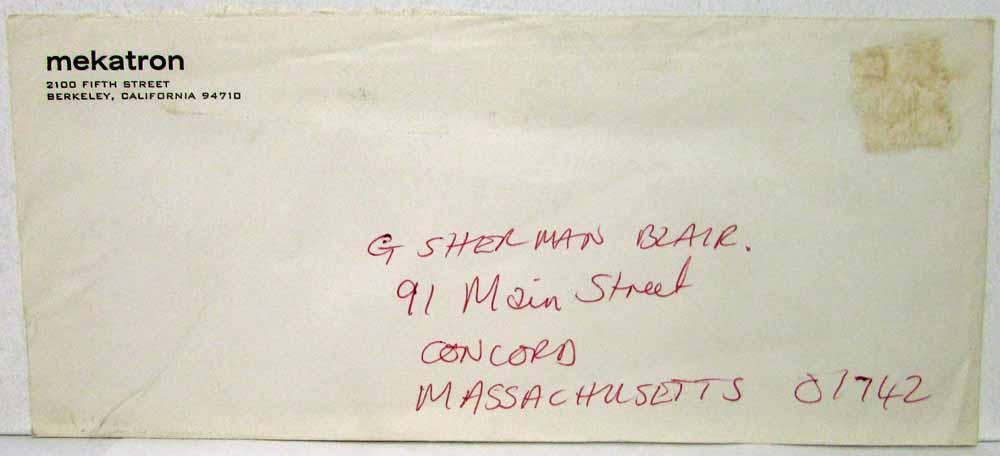 mekatron
2100 FIFTH STREET
BERKELEY, CALIFORNIA 94710
G SHERMAN BLAIR.
91 Main Street
CONCORD
MASSACHUSETTS 01742